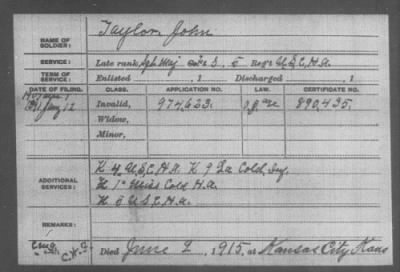 NAME OF SOLDIER: Taylor, John
SERVICE: Late rank, Sgt Maj Co. & S. 5 Reg't U.S.C.H.A.
TERM OF SERVICE: Enlisted , 1 Discharged , 1
DATE OF FILING. CLASS. APPLICATION NO. LAW. CERTIFICATE NO.
Invalid, 974,623. 890,435.
Widow,
Minor,
K 4 U.S.C.H.A. K 9 La Cold. Inf.
ADDITIONAL SERVICES: K 1st Miss Cold H.A.
K 5 U.S.C.H.A.
REMARKS:
Died June 2, 1915, at Kansas City Kans